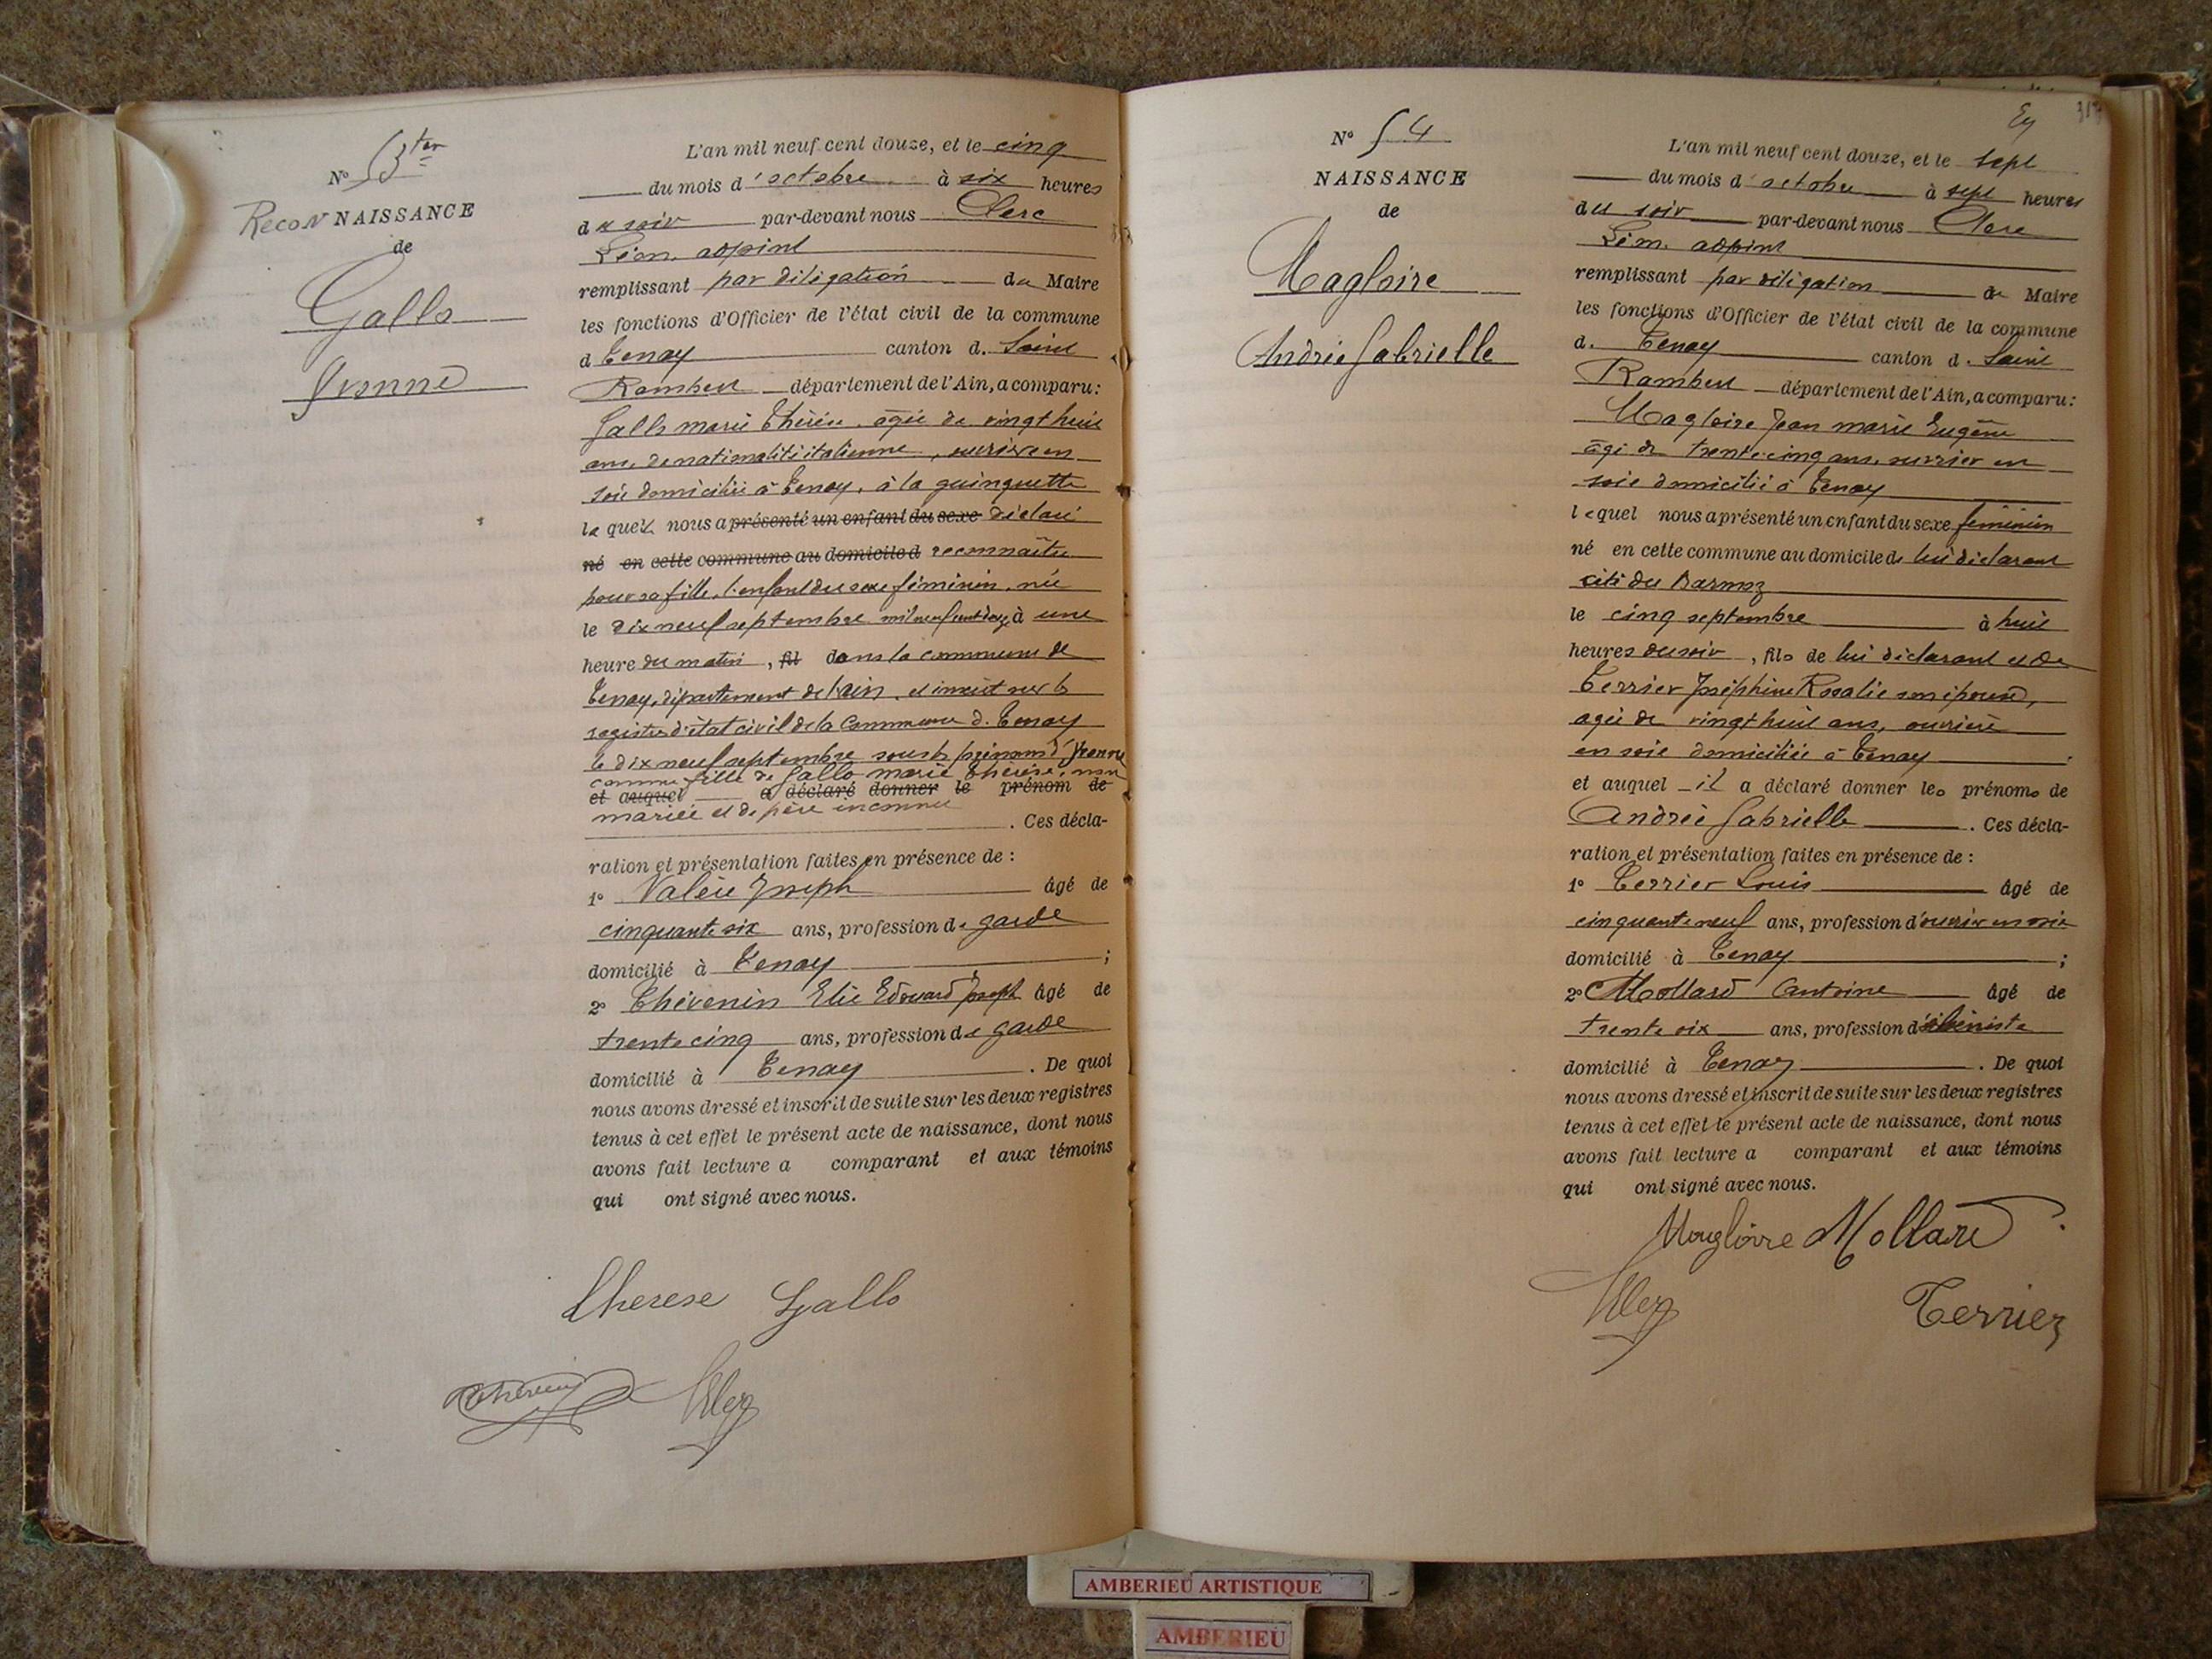 N° 53 ter
Recon NAISSANCE
de
Gallo
Yvonne
L'an mil neuf cent douze, et le cinq
du mois d'octobre à six heures
du soir par-devant nous Clerc
Léon, adjoint
remplissant par délégation du Maire
les fonctions d'Officier de l'état civil de la commune
d Tenay canton d. Saint
Rambert département de l'Ain, a comparu:
Gallo marie Thérèse, agée de vingt huit
ans, de nationalité italienne, ouvrière en
soie domiciliée à Tenay, à la guinguette
laquelle nous a présenté un enfant du sexe déclaré
né en cette commune au domicile d reconnaître
pour sa fille, l'enfant du sexe féminin, née
le dix neuf septembre mil neuf cent douze, à une
heure du matin, fil dans la commune de
Tenay, département de l'ain, et inscrit sur les
registres d'état civil de la Commune d. Tenay
le dix neuf septembre sous le prénom d'Yvonne
comme fille de Gallo marie Thérèse, non
et auquel a déclaré donner le prénom de
mariée et de père inconnu
. Ces décla-
ration et présentation faites en présence de :
1° Joseph âgé de
cinquante six ans, profession de garde
domicilié à Tenay ;
2° Thévenin Elie Edouard Joseph âgé de
trente cinq ans, profession de garde
domicilié à Tenay . De quoi
nous avons dressé et inscrit de suite sur les deux registres
tenus à cet effet le présent acte de naissance, dont nous
avons fait lecture a comparant et aux témoins
qui ont signé avec nous.
Therese Gallo
Thévenin
Ey
317
N° 54
NAISSANCE
de
Magloire
Andrée Gabrielle
L'an mil neuf cent douze, et le sept
du mois d'octobre à sept heures
du soir par-devant nous Clerc
Léon, adjoint
remplissant par délégation du Maire
les fonctions d'Officier de l'état civil de la commune
d. Tenay canton d. Saint
Rambert département de l'Ain, a comparu:
Magloire Jean marie Eugène
âgé de trente cinq ans, ouvrier en
soie domicilié à Tenay
lequel nous a présenté un enfant du sexe féminin
né en cette commune au domicile de lui déclarant
cité du
le cinq septembre à huit
heures du soir, fils de lui déclarant et de
Terrier Joséphine Rosalie son épouse,
agée de vingt huit ans, ouvrière
en soie domiciliée à Tenay .
et auquel il a déclaré donner les prénoms de
Andrée Gabrielle . Ces décla-
ration et présentation faites en présence de :
1° Terrier Louis âgé de
cinquante neuf ans, profession d'ouvrier en soie
domicilié à Tenay ;
2° Mollard Antoine âgé de
trente six ans, profession d'ébéniste
domicilié à Tenay . De quoi
nous avons dressé et inscrit de suite sur les deux registres
tenus à cet effet le présent acte de naissance, dont nous
avons fait lecture a comparant et aux témoins
qui ont signé avec nous.
Magloire Mollard
Terrier
AMBERIEU ARTISTIQUE
AMBERIEU